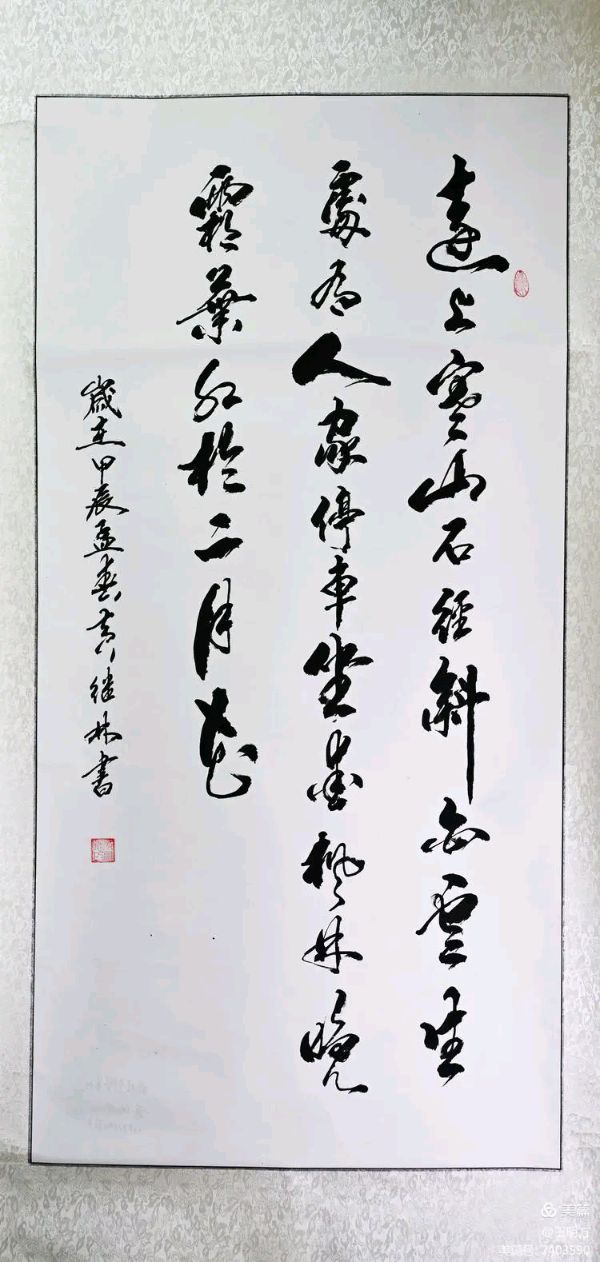 遠上寒山石徑斜白雲生
處有人家停車坐愛楓林晚
霜葉紅於二月花
歲在甲辰孟春黄继林書
美篇